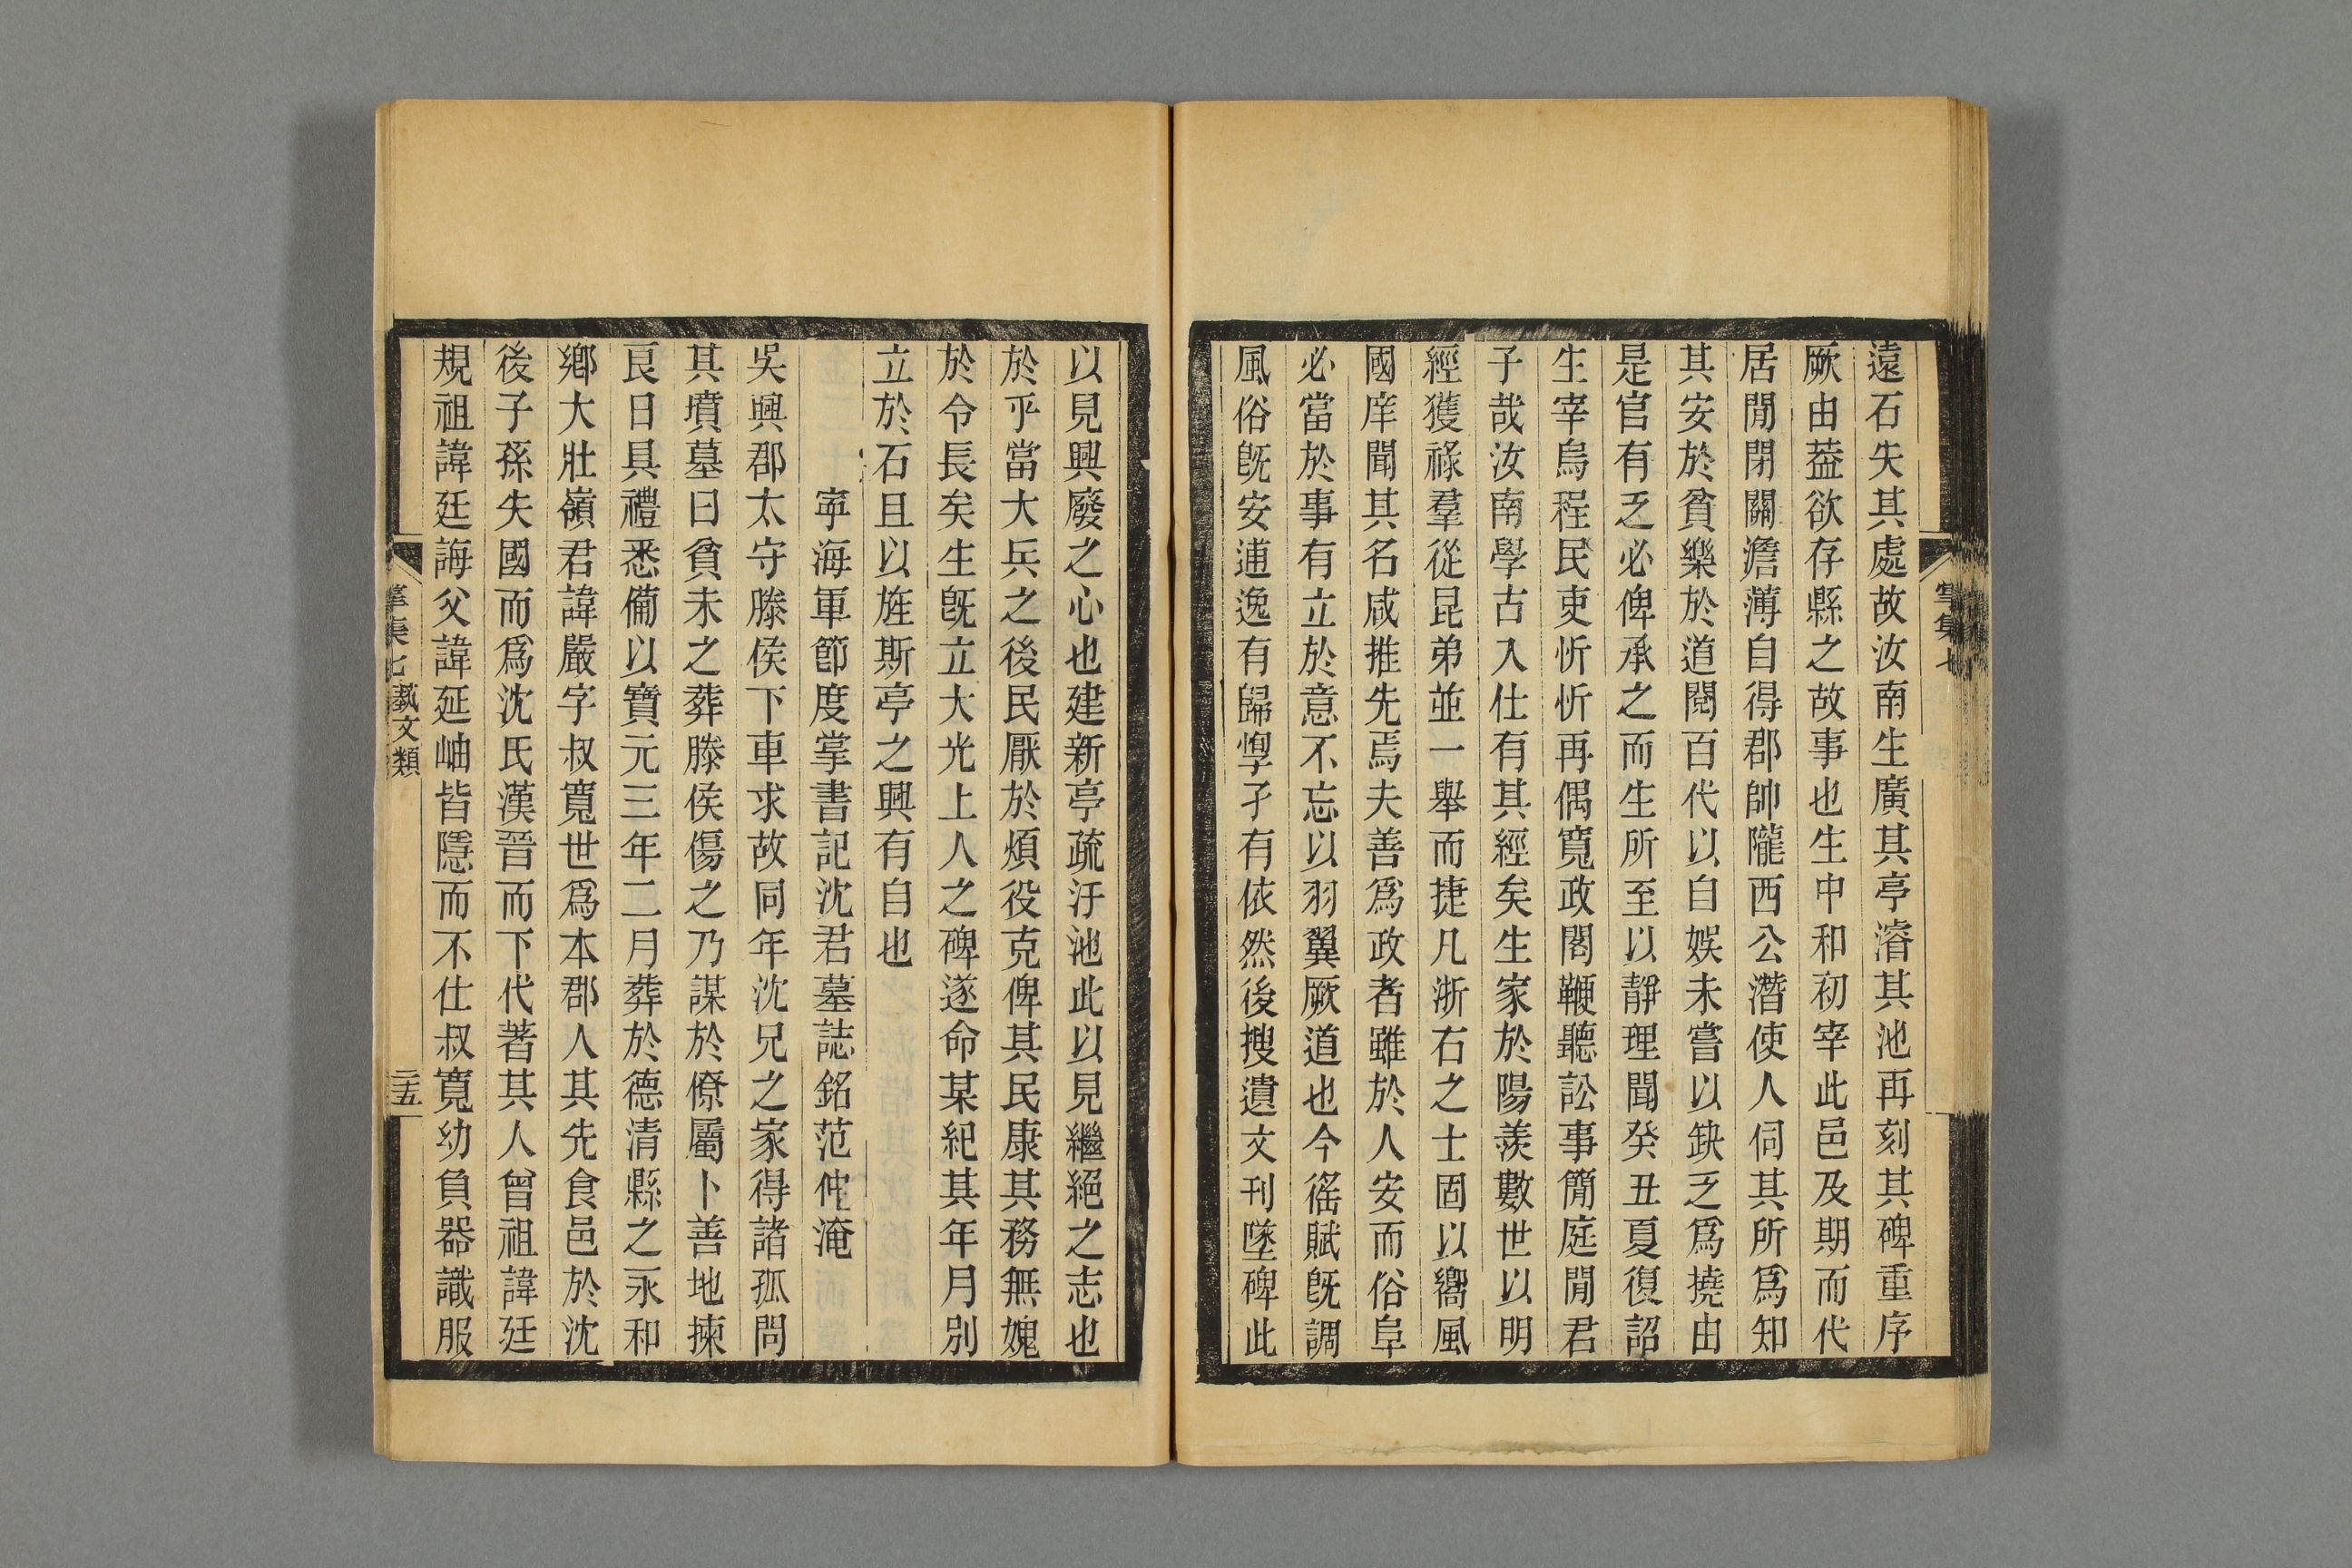 遠石失其處故汝南生廣其亭濬其池再刻其碑重序
厥由葢欲存縣之故事也生中和初宰此邑及期而代
居閒閉關澹薄自得郡帥隴西公潛使人伺其所爲知
其安於貧樂於道閱百代以自娯未嘗以缺乏爲撓由
是官有乏必俾承之而生所至以靜理聞癸丑夏復詔
生宰烏程民吏忻忻再偶寬政閤鞭聽訟事簡庭閒君
子哉汝南學古入仕有其經矣生家於陽羨數世以明
經獲祿羣從昆弟並一舉而捷凡浙右之士固以嚮風
國庠聞其名咸推先焉夫善爲政者雖於人安而俗阜
必當於事有立於意不忘以羽翼厥道也今徭賦旣調
風俗旣安逋逸有歸惸孑有依然後搜遺文刊墜碑此
以見興廢之心也建新亭疏汙池此以見繼絕之志也
於乎當大兵之後民厭於煩役克俾其民康其務無媿
於令長矣生旣立大光上人之碑遂命某紀其年月別
立於石且以旌斯亭之興有自也
寧海軍節度掌書記沈君墓誌銘范仲淹
吳興郡太守滕侯下車求故同年沈兄之家得諸孤問
其墳墓曰貧未之葬滕侯傷之乃謀於僚屬卜善地揀
良日具禮悉備以寶元三年二月葬於德清縣之永和
鄉大壯嶺君諱嚴字叔寬世爲本郡人其先食邑於沈
後子孫失國而爲沈氏漢晉而下代著其人曾祖諱廷
規祖諱廷誨父諱延岫皆隱而不仕叔寬幼負器識服
掌集七 藝文類 三五